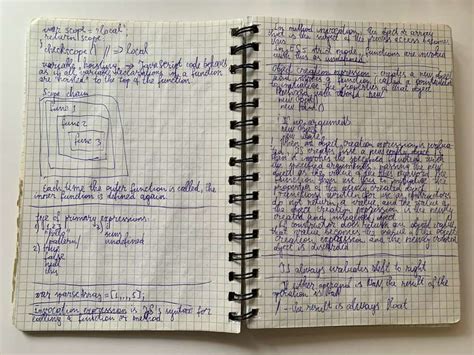 var scope = "local";
return scope;
}
checkscope() // => local
variable hoisting => JavaScript code behaves
as if all variable declarations in a function
are "hoisted" to the top of the function
Scope chain
func 1
func 2
func 3
Each time the outer function is called, the
inner function is defined again
type of primary expressions:
1) 1,23
"hello"
/pattern/
2) true
false
null
this
undefined
var sparseArray = [1,,,,5];
Invocation expression is JS's syntax for
calling a function or method
For method invocation, the object or array
that is the subject of the property access becomes
this
in ES5 strict mode, functions are invoked
with this as undefined
object creation expression: creates a new object
and invokes a function (called a constructor)
to initialize the properties of that object
Prefixed with word new
new Object()
new Point(
If no arguments:
new Object
new Date
When an object creation expression is evaluated,
JS creates first a new empty object,
then it invokes the specified function with
the specified arguments, passing the new
object as the value of the this keyword. The
function can use this to initialize the
properties of the newly created object
Functions written for use as constructors
do not return a value, and the value of
the object creation expression is the newly
created and initialized object
If constructor does return an object value,
that value becomes the value of the object
creation expression and the newly created
object is discarded
JS always evaluates left to right
If either operand is NaN the result of the
operation is NaN
/ - the result is always float